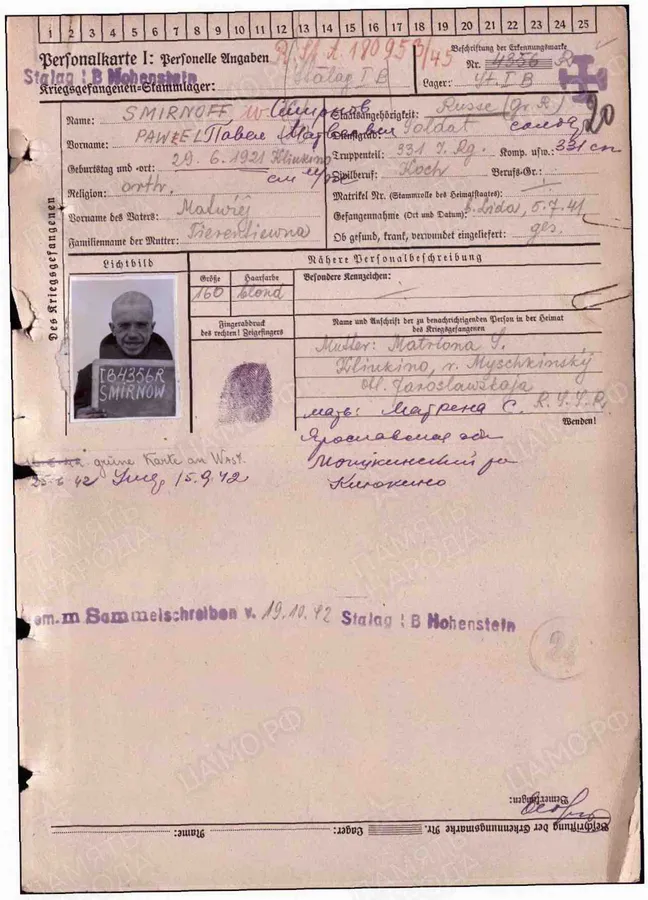 1 2 3 4 5 6 7 8 9 10 11 12 13 14 15 16 17 18 19 20 21 22 23 24 25
Personalkarte I: Personelle Angaben
180953/45
Beschriftung der Erkennungsmarke
Stalag I B Hohenstein
Stalag I B
Nr. 4356
Kriegsgefangenen-Stammlager:
Lager: St. I B
20
Des Kriegsgefangenen
Name: SMIRNOFF, W Смирнов
Staatsangehörigkeit: Russe (Gr. R.)
Vorname: PAWEL Павел Матвеевич
Dienstgrad: Soldat солдат
Truppenteil: 331 J. Rg. Komp. usw.: 331 сп
Geburtstag und -ort: 29. 6. 1921 Klinkino
Zivilberuf: Koch Berufs-Gr.:
Religion: orth.
Matrikel Nr. (Stammrolle des Heimatstaates):
Vorname des Vaters: Matwiej
Gefangennahme (Ort und Datum): b. Lida, 5. 7. 41
Familienname der Mutter: Tierentiewna
Ob gesund, krank, verwundet eingeliefert: ges.
Lichtbild
Nähere Personalbeschreibung
Größe
Haarfarbe
Besondere Kennzeichen:
160
blond
Fingerabdruck
des rechten! Zeigefingers
Name und Anschrift der zu benachrichtigenden Person in der Heimat
des Kriegsgefangenen
IB4356R
SMIRNOW
Mutter: Matriona S.
Klinkino, r. Myschkinskij
obl. Jaroslawskaja
мать: Матрена С. R.S.F.R.
Wenden!
Ярославская
Клюкино
grüne Karte an WASt.
25.6.42
15.9.42
m Sammelschreiben v. 19.10.42 Stalag I B Hohenstein
Bemerkungen:
Beschriftung der Erkennungsmarke Nr. Lager: Name:
ПАМЯТЬ НАРОДА
ЦАМО РФ